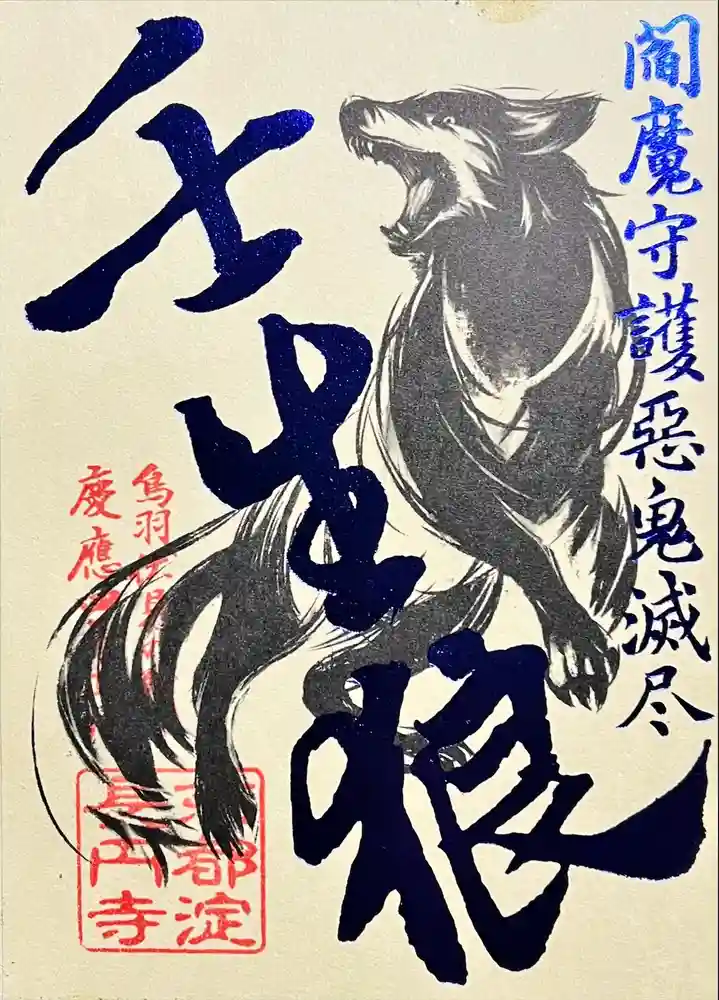 閻魔守護惡鬼滅尽
壬生狼
鳥羽伏見
慶應
京都淀
長円寺